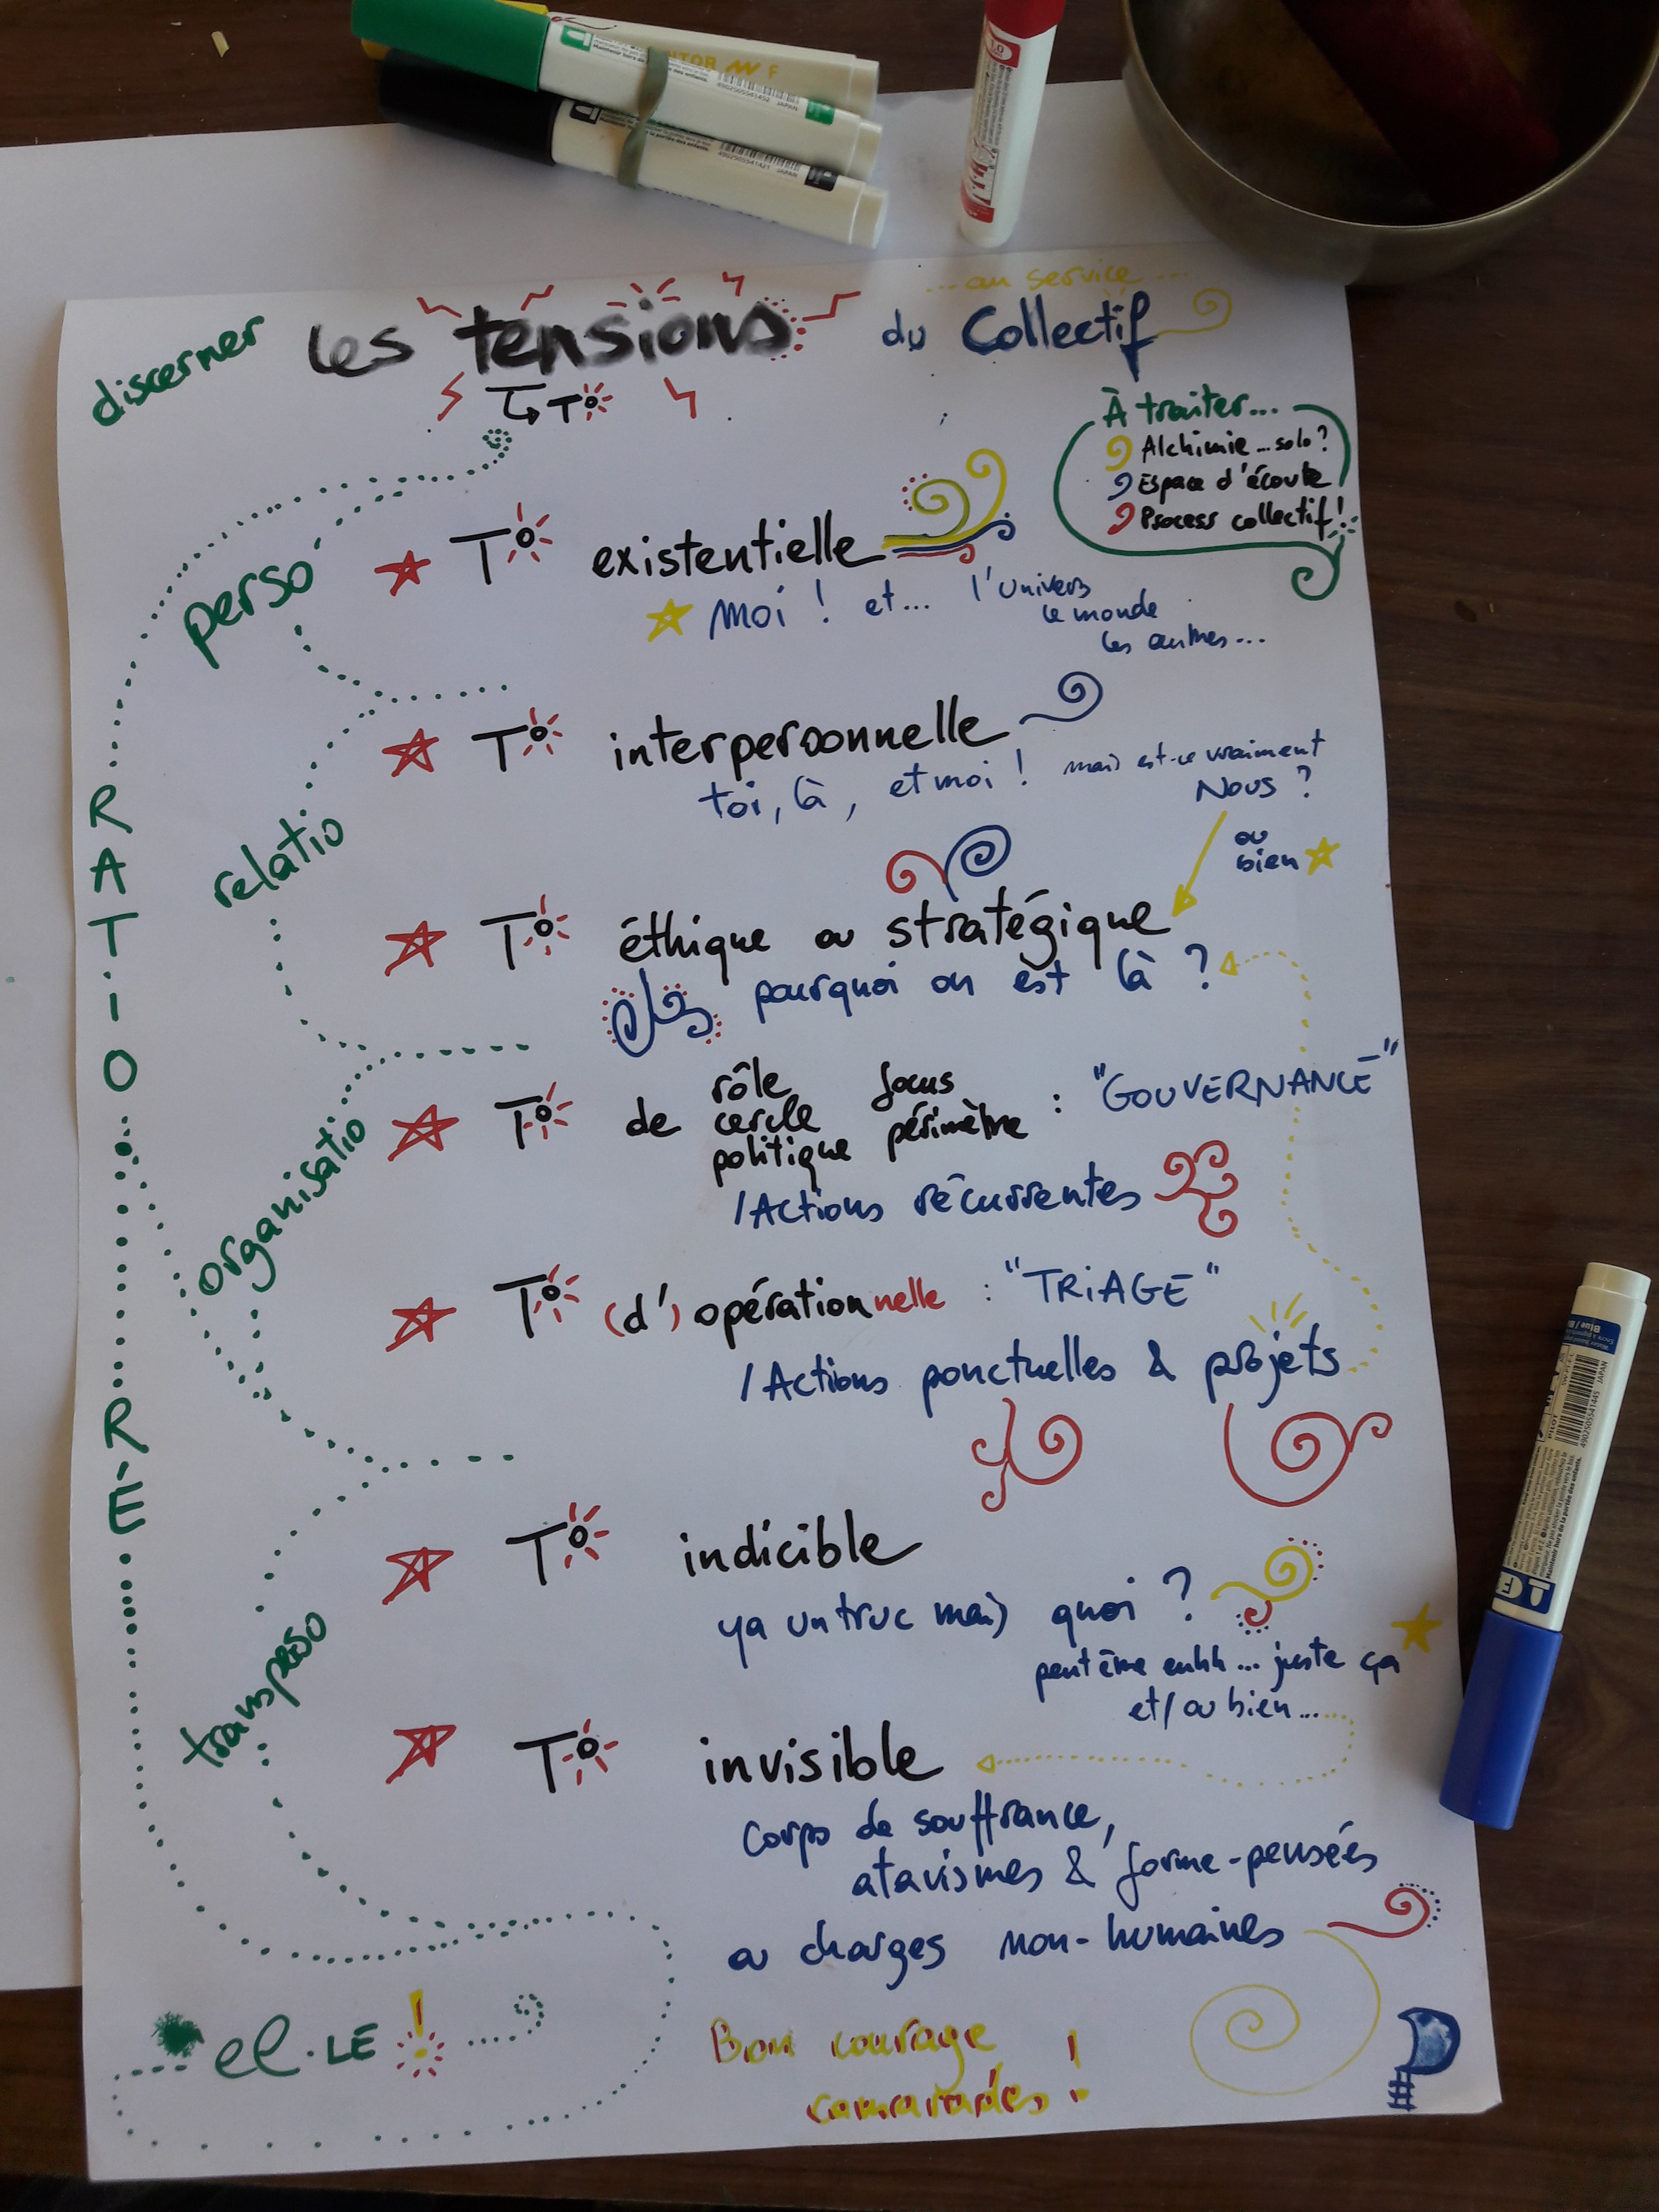 ... au service ...
discerner les tensions du Collectif
T°
À traiter...
Alchimie ... solo ?
Espace d'écoute
Process collectif !
perso
T° existentielle
Moi ! et... l'Univers
le monde
les autres...
T° interpersonnelle
toi, là, et moi ! mais est-ce vraiment
Nous ?
ou
bien
relatio
T° éthique ou stratégique
pourquoi on est là ?
RATIO
organisatio
T° de rôle focus
cercle périmètre : "GOUVERNANCE"
politique
/ Actions récurrentes
T° (d') opérationnelle : "TRIAGE"
/ Actions ponctuelles & projets
RÉ
transperso
T° indicible
ya un truc mais quoi ?
peut être euhh... juste ça
et/ou bien...
T° invisible
Corps de souffrance,
atavismes & forme-pensées
ou charges non-humaines
el·LE !
Bon courage
camarades !
4902505541452 JAPAN
4902505541421 JAPAN
1.0
Blue
4902505541445 JAPAN
PILOT